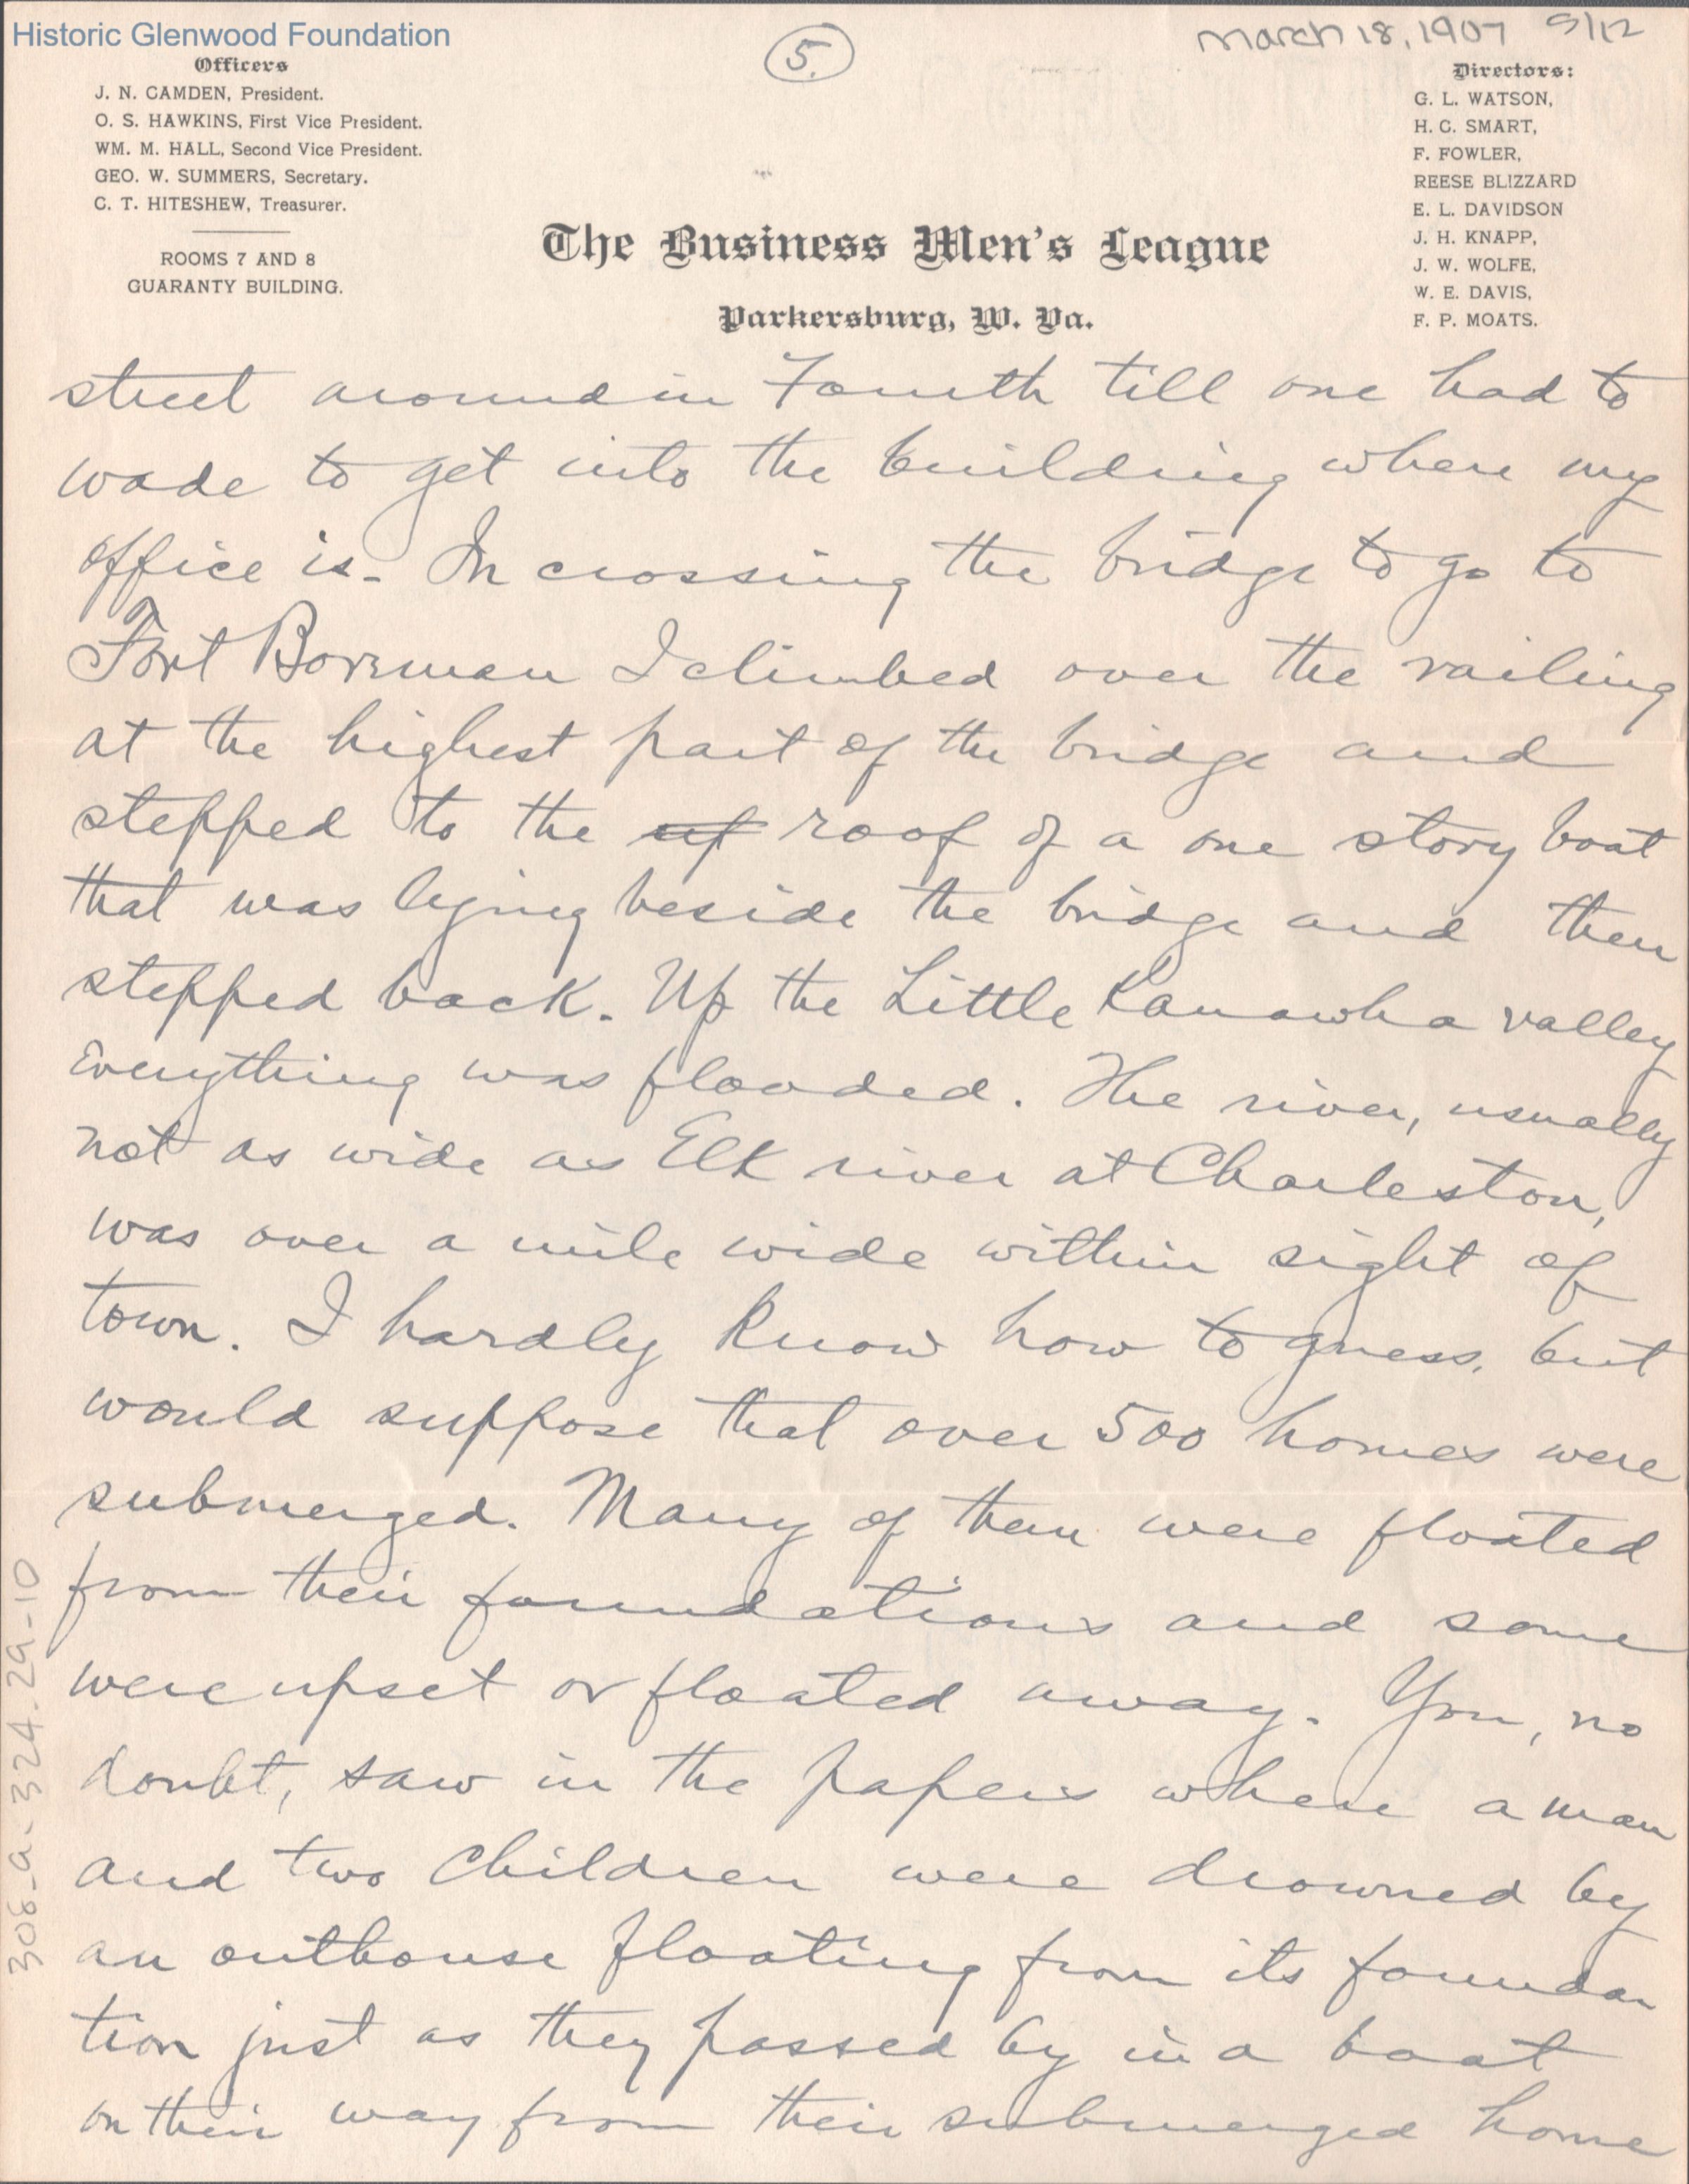 Historic Glenwood Foundation
5.
March 18, 1907 9/12
Officers
J. N. CAMDEN, President.
O. S. HAWKINS, First Vice President.
WM. M. HALL, Second Vice President.
GEO. W. SUMMERS, Secretary.
C. T. HITESHEW, Treasurer.
ROOMS 7 AND 8
GUARANTY BUILDING.
Directors:
G. L. WATSON,
H. C. SMART,
F. FOWLER,
REESE BLIZZARD
E. L. DAVIDSON
J. H. KNAPP,
J. W. WOLFE,
W. E. DAVIS,
F. P. MOATS.
The Business Men's League
Parkersburg, W. Va.
street around in Fourth till one had to
wade to get into the building where my
office is- In crossing the bridge to go to
Fort Boreman I climbed over the railing
at the highest part of the bridge and
stepped to the roof of a one story boat
that was lying beside the bridge and then
stepped back. Up the Little Kanawha valley
everything was flooded. The river, usually
not as wide as Elk river at Charleston,
was over a mile wide within sight of
town. I hardly know how to guess, but
would suppose that over 500 homes were
submerged. Many of them were floated
from their foundations and some
were upset or floated away. You, no
doubt, saw in the papers where a man
and two children were drowned by
an outhouse floating from its founda
tion just as they passed by in a boat
on their way from their submerged home
306-a-324.29-10